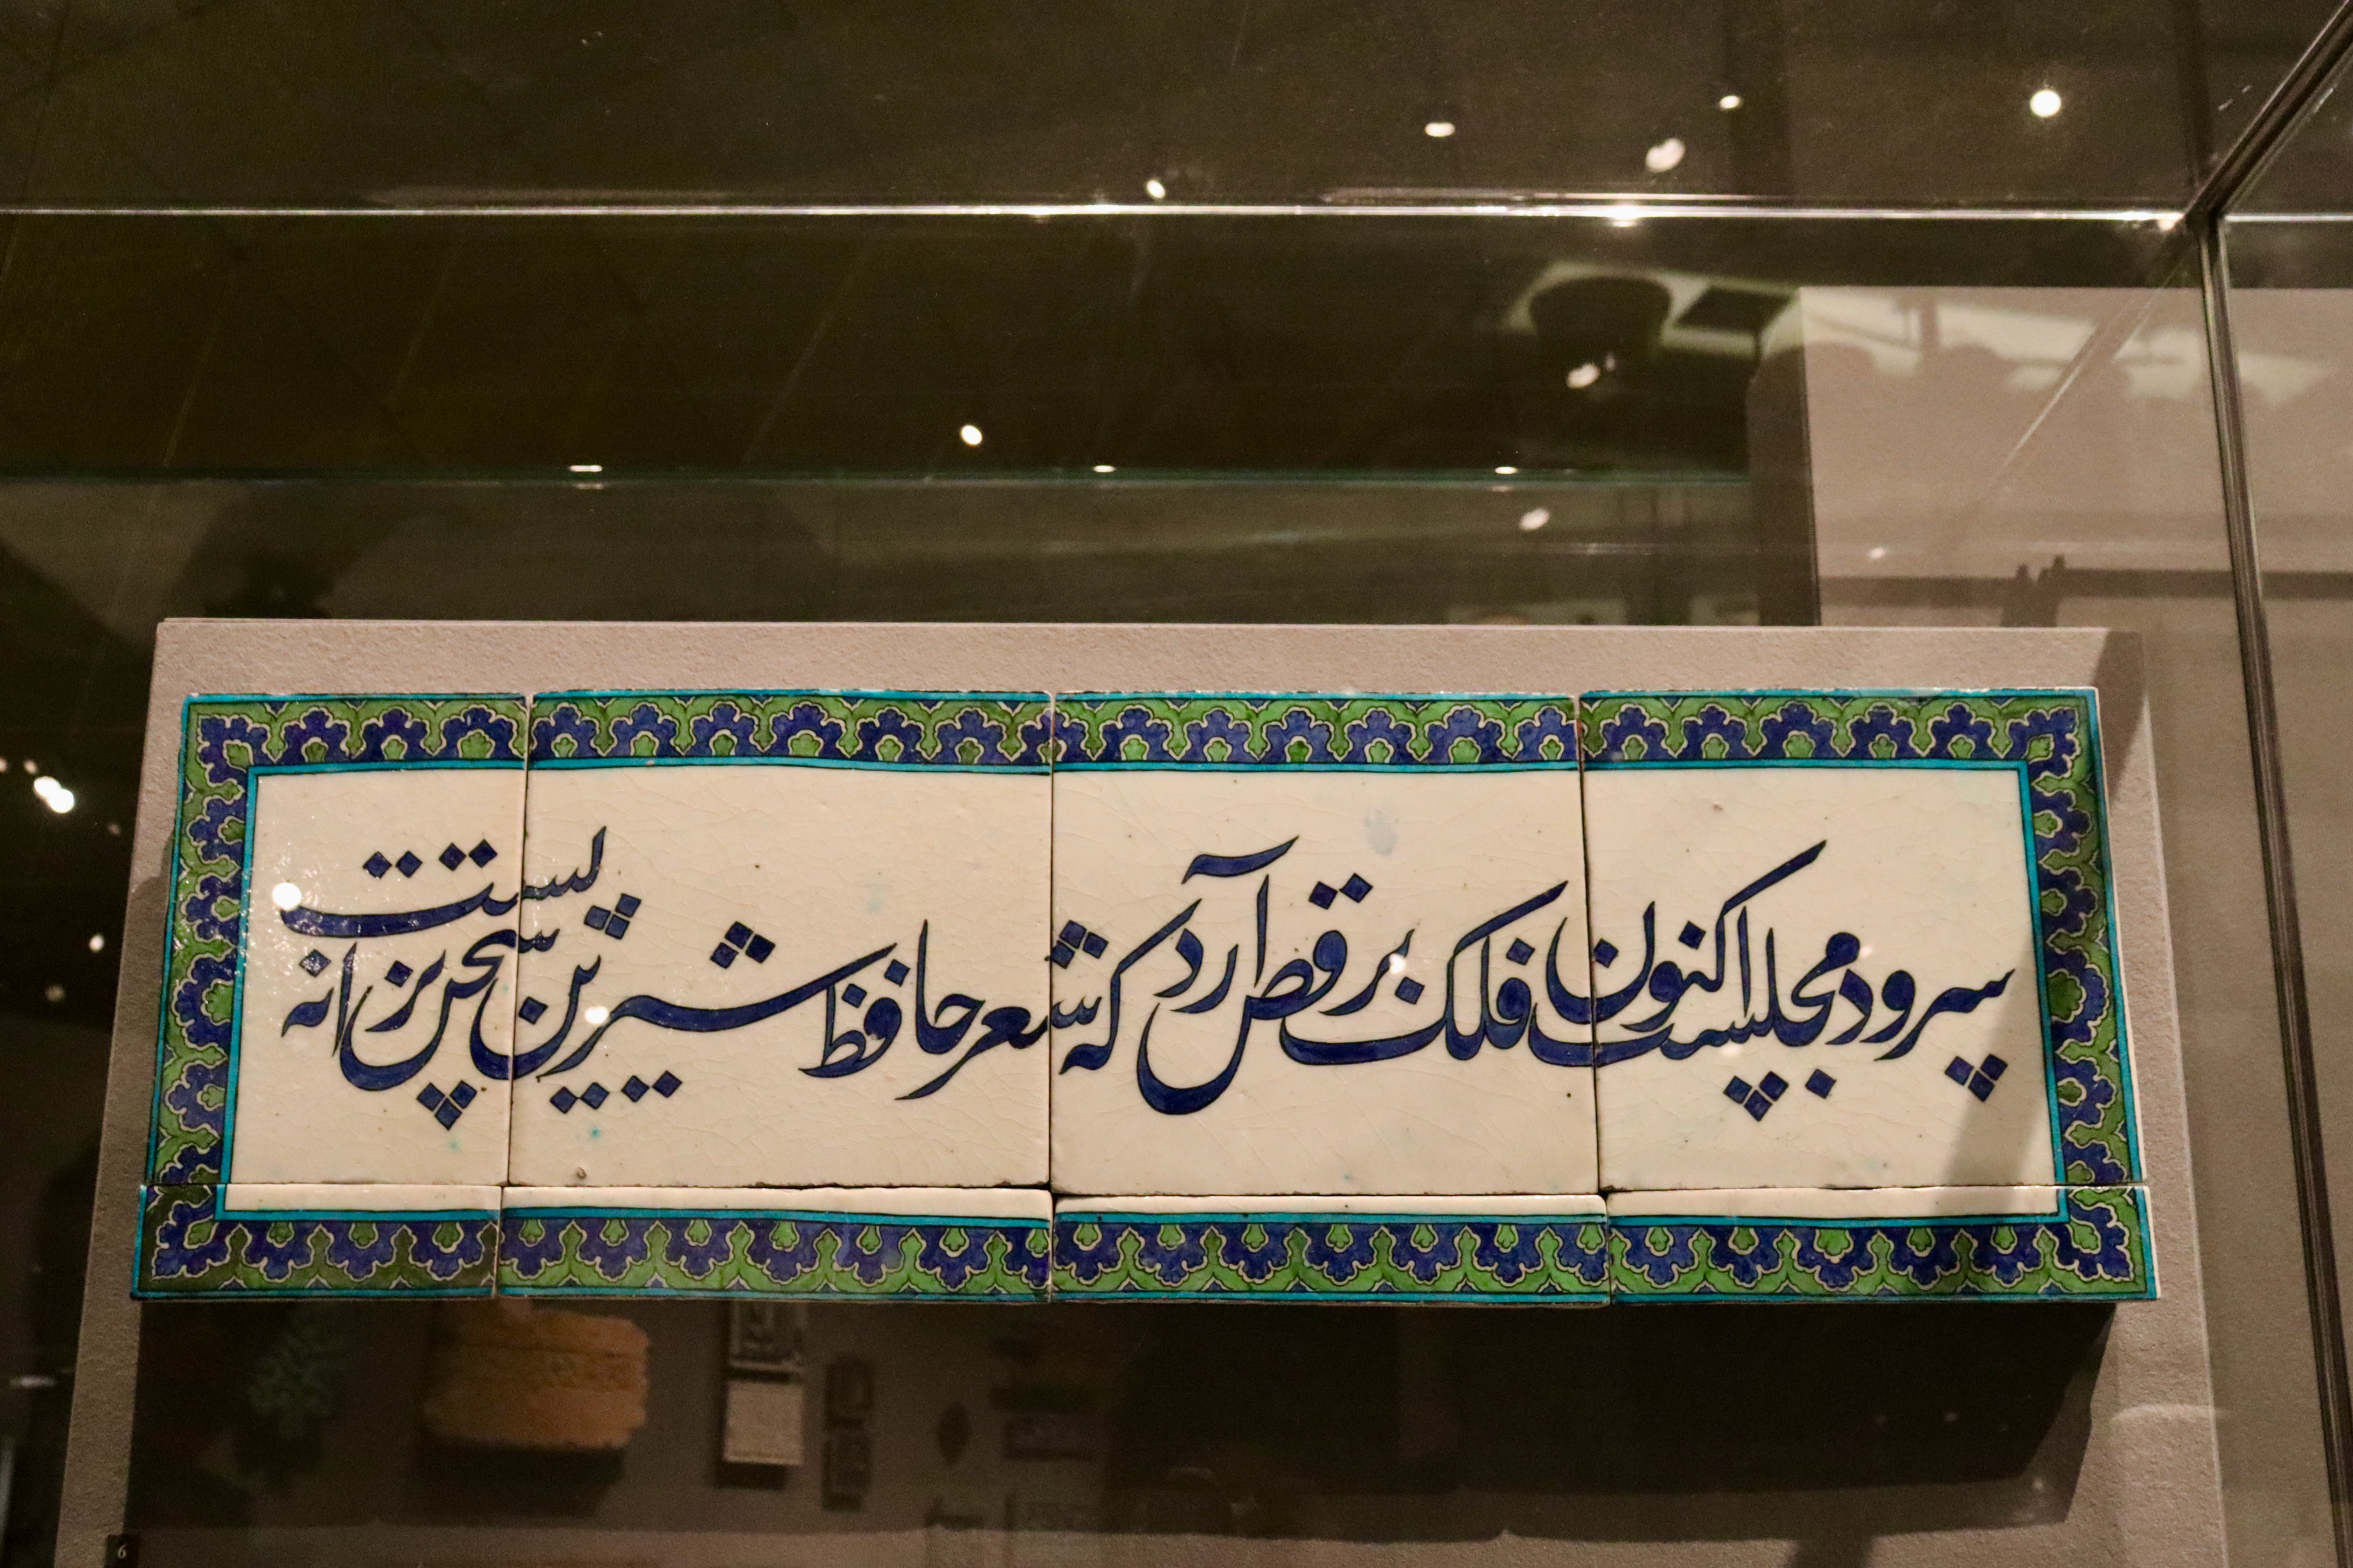 سرود مجلست اکنون فلک برقص آرد که شعر حافظ شیرین سخن ترانه تست
6